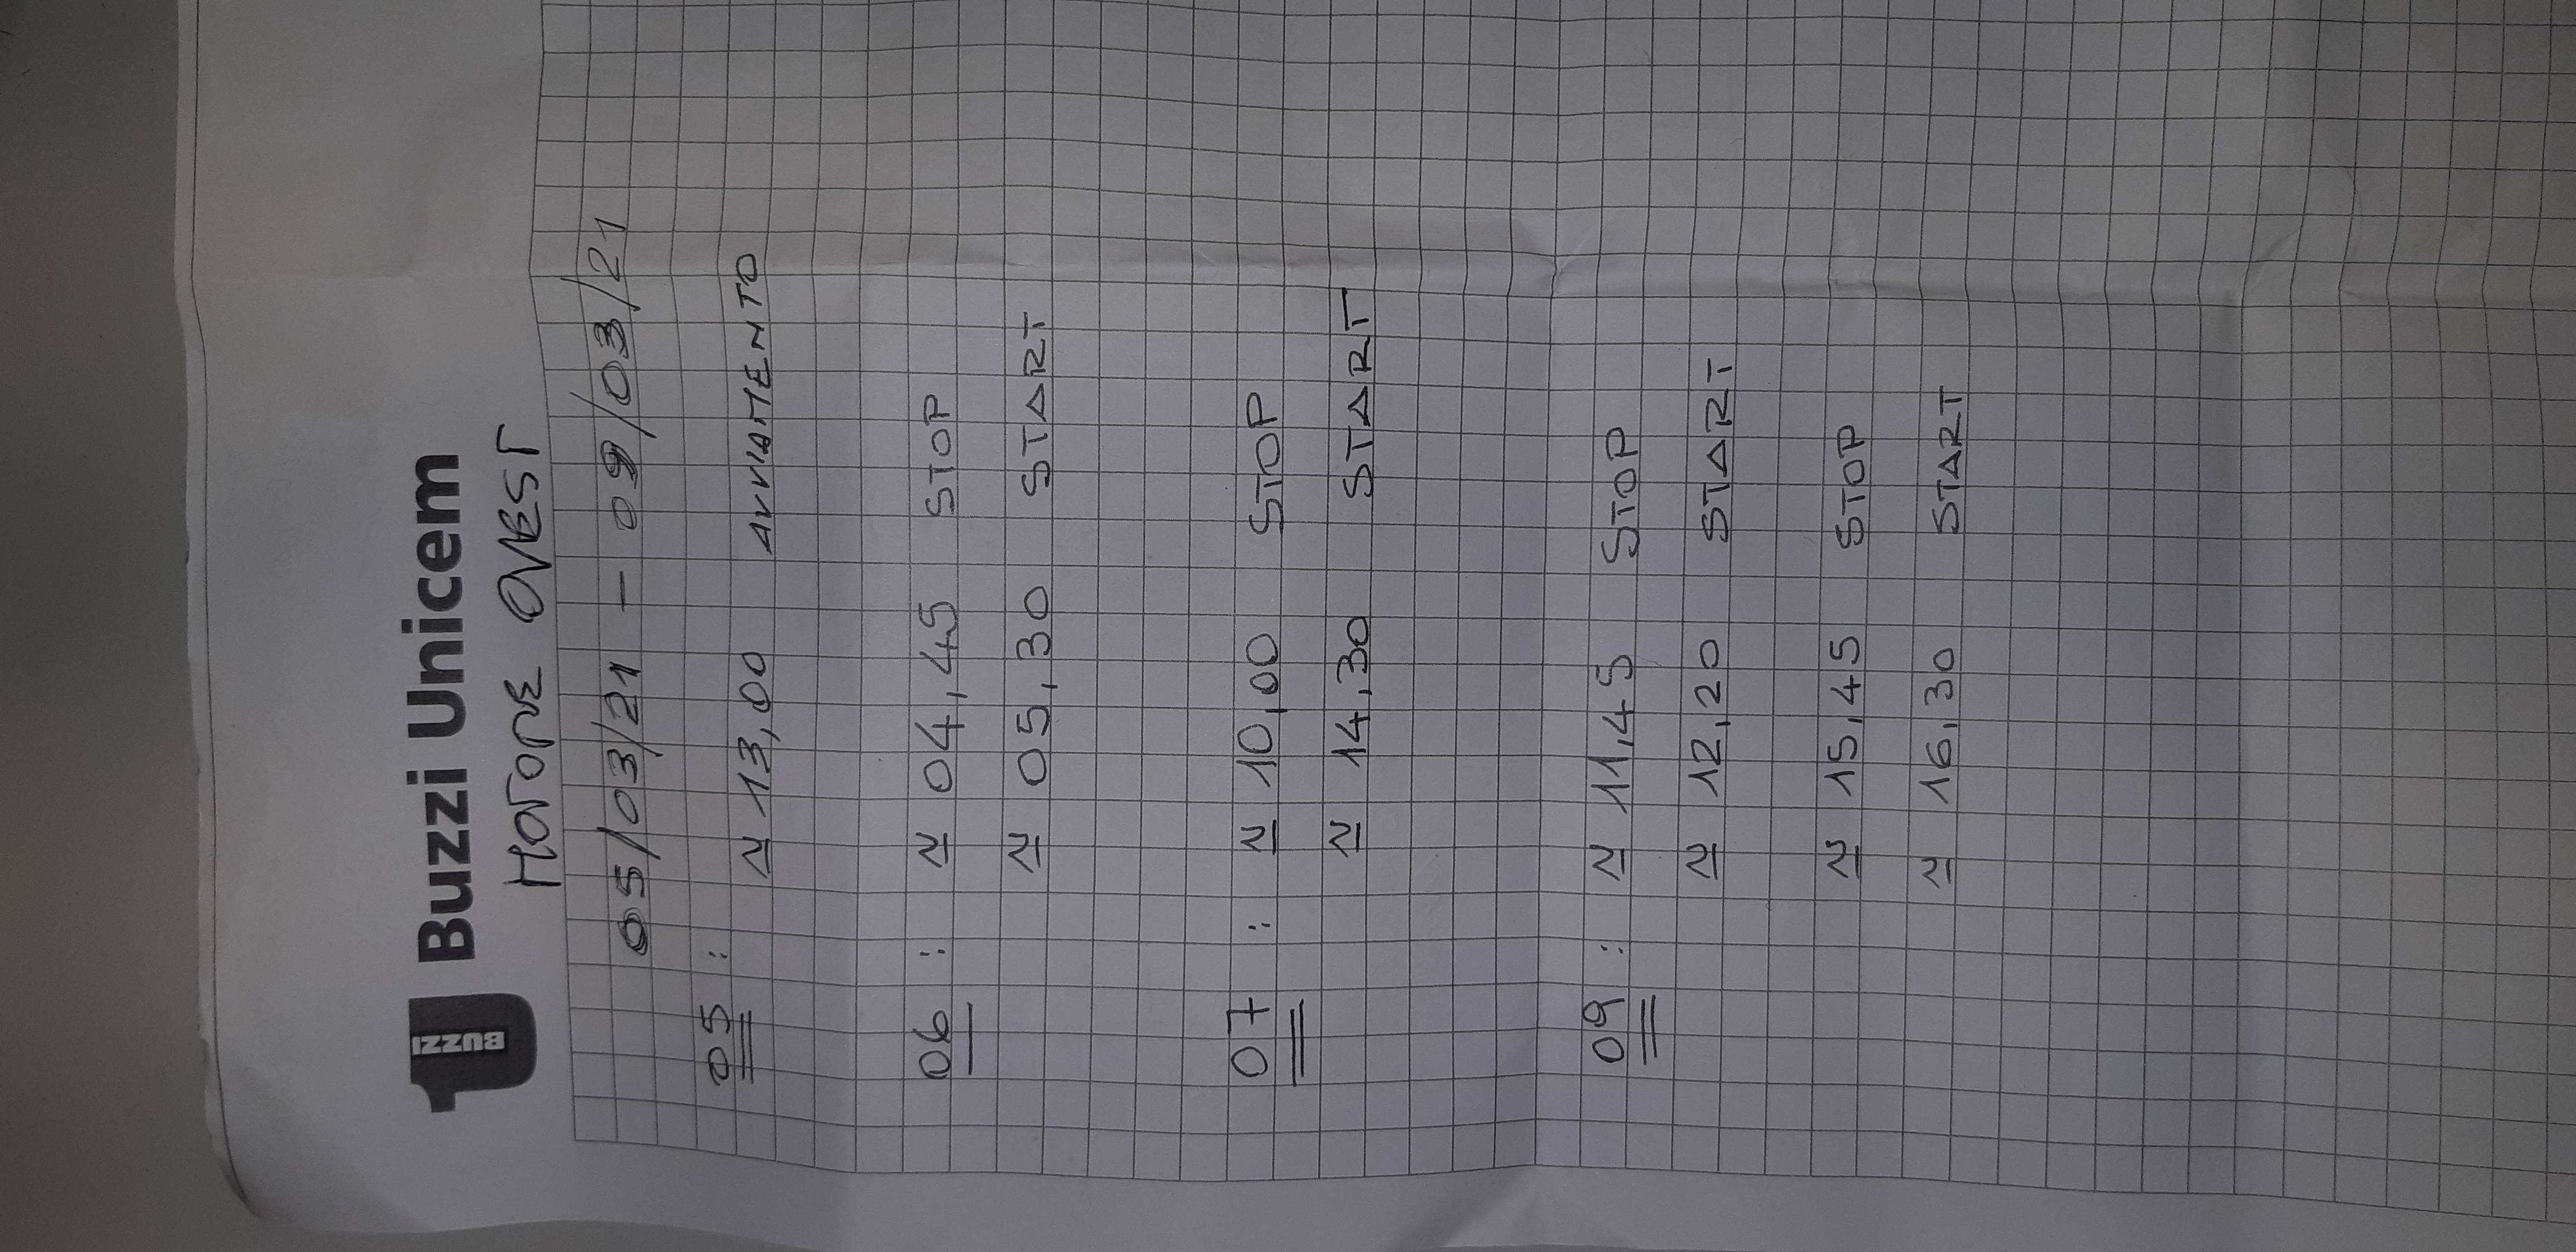 BUZZI
Buzzi Unicem
MOTORE OVEST
05/03/21 - 09/03/21
05 :
≃ 13,00 AVVIAMENTO
06 : ≃ 04,45 STOP
≃ 05,30 START
07 : ≃ 10,00 STOP
≃ 14,30 START
09 : ≃ 11,45 STOP
≃ 12,20 START
≃ 15,45 STOP
≃ 16,30 START